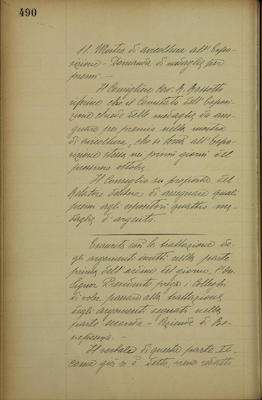 490
11. Mostra di avicoltura all'Espo-
sizione - Domanda di medaglie per
premi. -
Il Consigliere Cav. A. Bassetti
riferisce che il Comitato dell'Espo-
sizione chiede delle medaglie da
per premio nella mostra
di avicoltura, che si terrà all'Espo-
sizione stessa nei primi giorni del
prossimo ottobre.
Il Consiglio su proposta del
Relatore delibera di assegnare quali
premi agli espositori quattro me-
daglie d'argento.
Esaurita così la trattazione de-
gli argomenti iscritti nella parte
prima dell'ordine del giorno, l'On.
Signor Presidente prega i colleghi
di voler passare alla trattazione
degli argomenti segnati nella
parte seconda - Aziende di Be-
neficenza. -
Il verbale di questa parte IIa
come già si è detto, viene